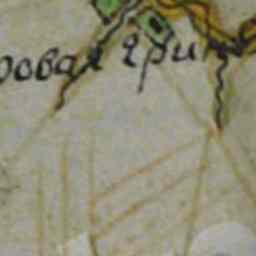 ровая гри